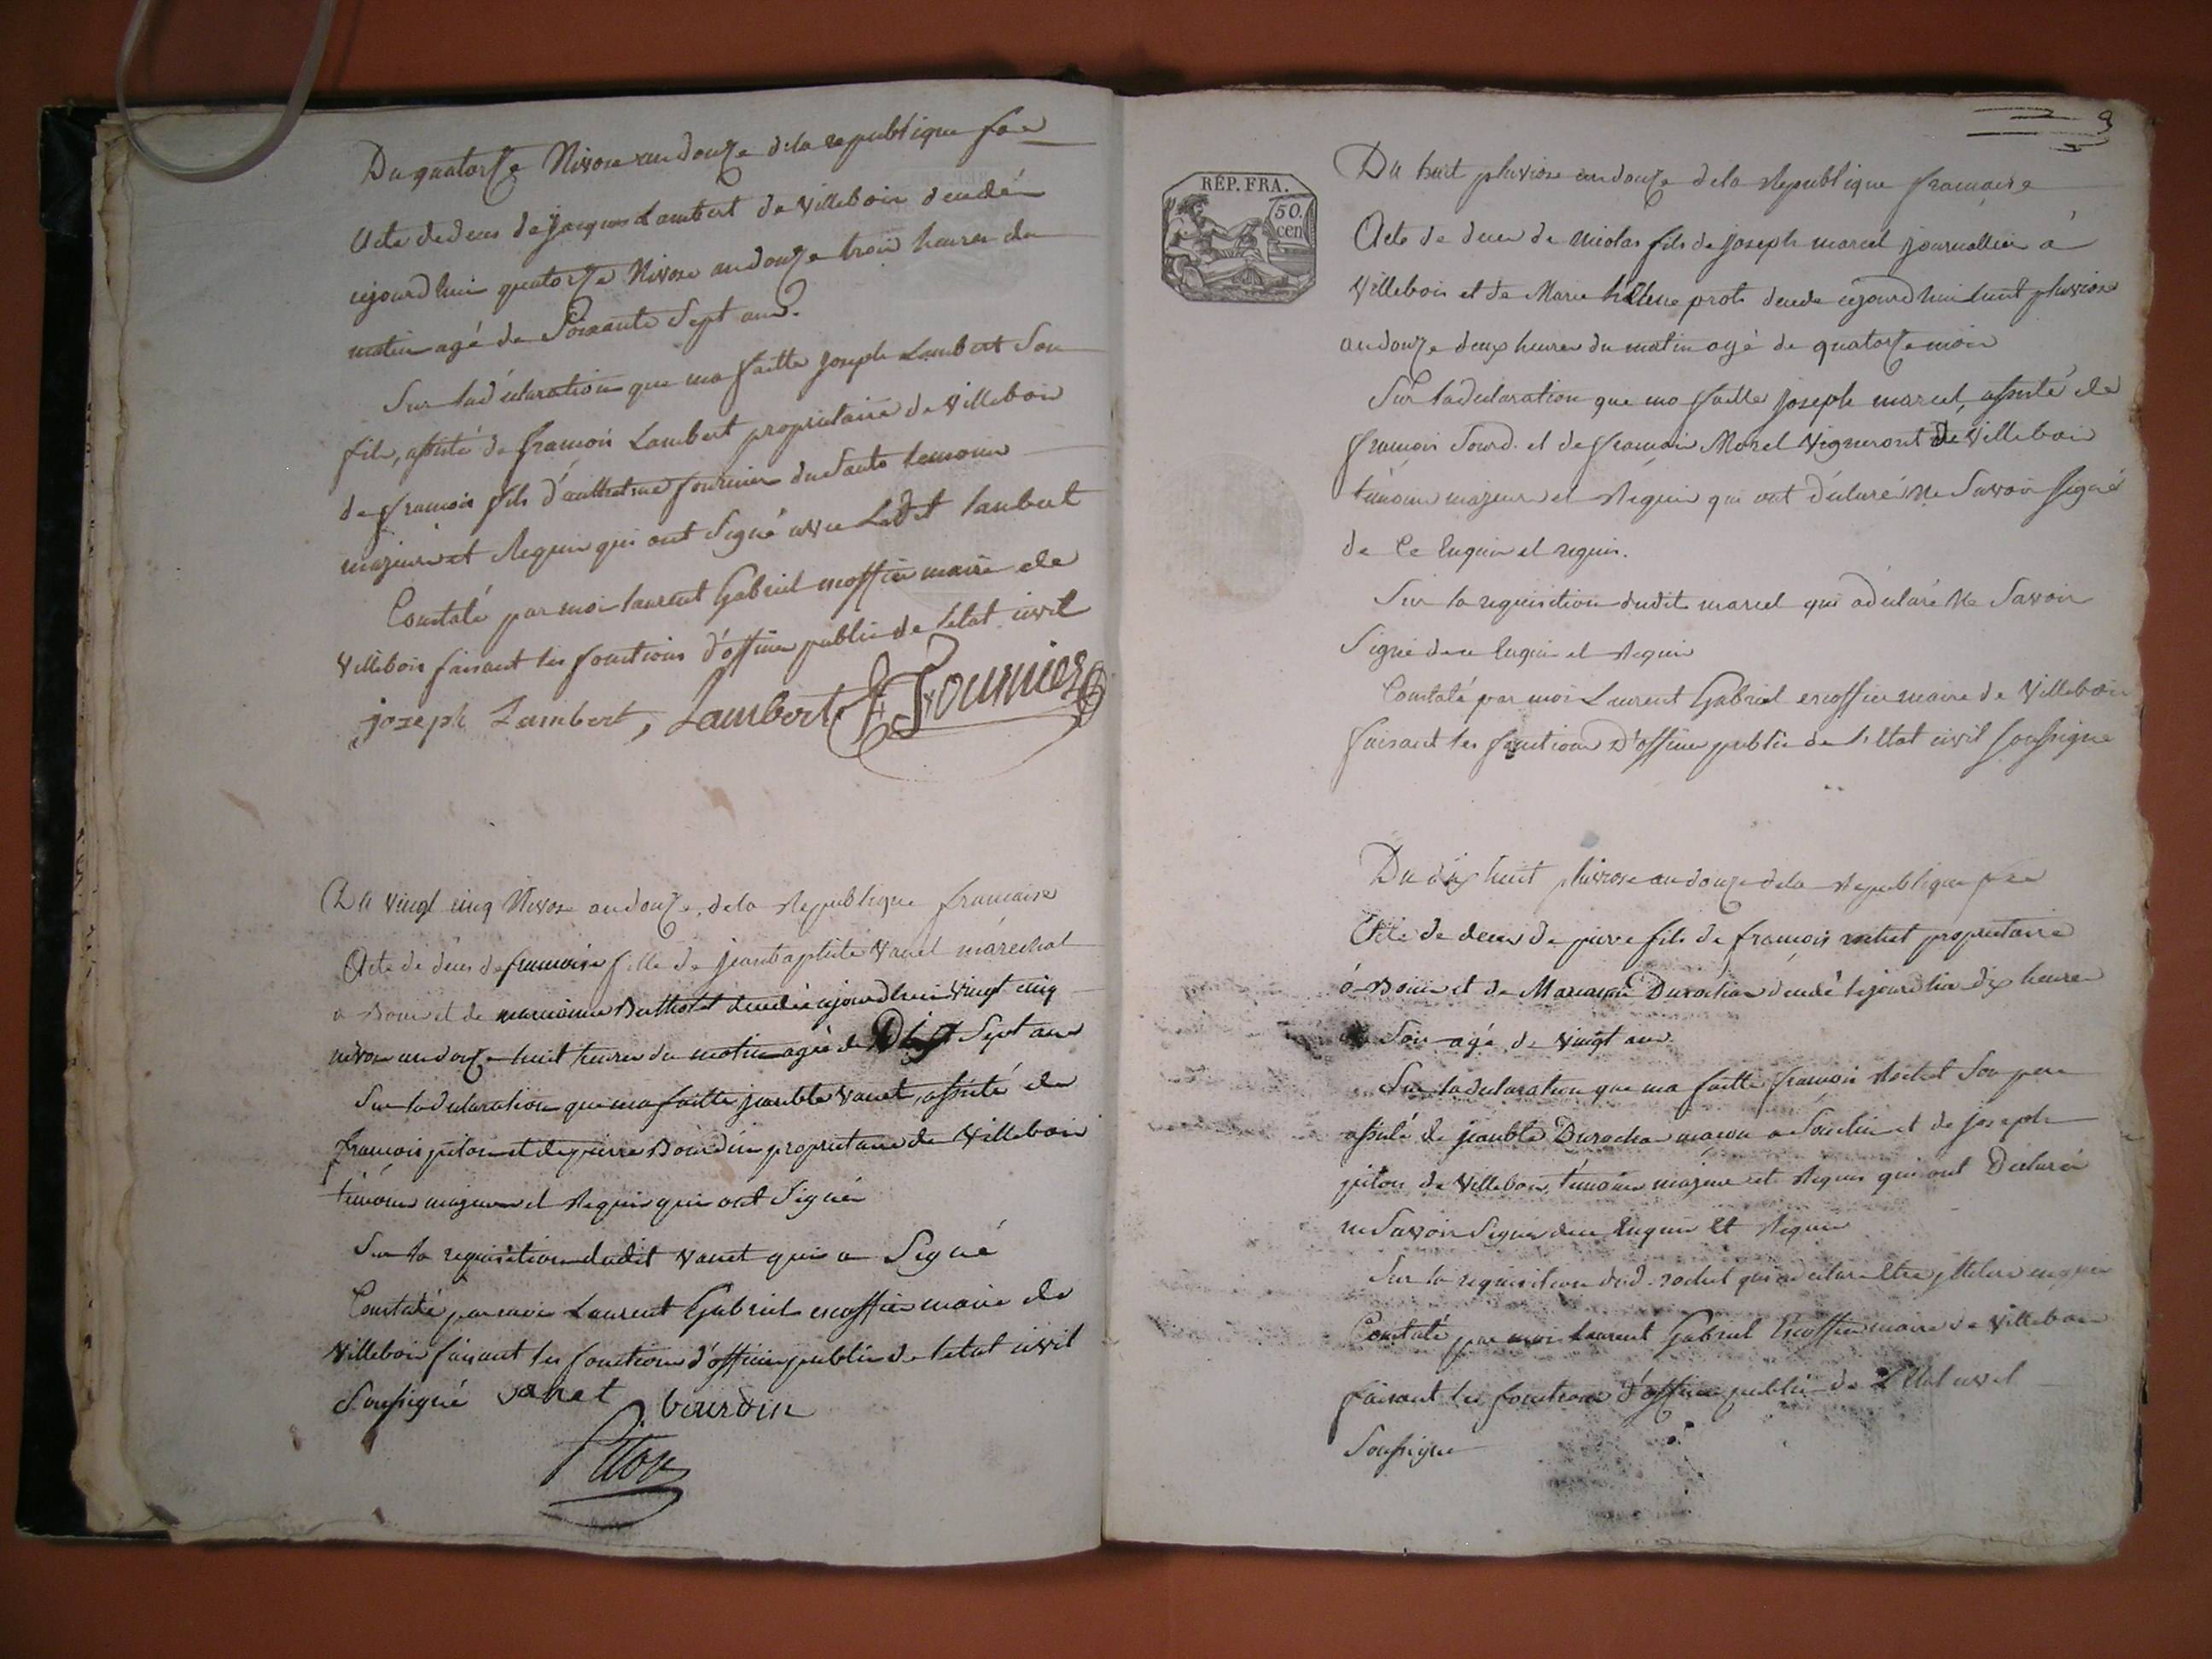 Du quatorze Nivose an douze dela republique fse
Acte dedeces de jacques Lambert de Villebois decedé
cejourdhui quatorze Nivose an douze trois heures du
matin agé de Soixante Sept ans.
Sur la déclaration que ma faitte joseph Lambert Son
fils, assisté de françois Lambert proprietaire de Villebois
de françois fils d'anthelme fournier du Sault temoins
majeurs et Requis qui ont Signé avec Ledit lambert
Constaté par moi laurent Gabriel escoffier maire de
Villebois faisant les fonctions d'officier public de letat civil
joseph Lambert, Lambert F Fournier
Du Vingt cinq Nivose an douze, dela Republique francaise
Acte de déces de francoise fille de jeanbaptiste Vanet maréchal
a Bouis et de marianne Bertholet decedée cejourdhui Vingt cinq
nivose an douze huit heures du matin agée de Dix Sept ans
Sur la declaration que ma faitte jeanbte Vanet, assisté de
francois piton et de pierre Bourdin proprietaire de Villebois
témoins majeurs et Requis qui ont Signés
Sur la requisition dudit Vanet qui a Signé
Constaté par moi Laurent Gabriel escoffier maire de
Villebois faisant les fonctions d'officier public de letat civil
Soussigné vanet bourdin
Piton
3
RÉP. FRA.
50.
cen
Du huit pluviose an douze dela Republique francaise
Acte de deces de Nicolas fils de joseph marcel journallier á
Villebois et de Marie héléne prots decedé cejourdhui huit pluviose
an douze deux heures du matin agé de quatorze mois
Sur la declaration que ma faitte joseph marcel, assisté de
francois Sourd. et de francois Morel Vignerons de Villebois
témoins majeurs et Requis qui ont déclaré Ne Savoir Signé
de Ce Enquis et requis.
Sur la requisition dudit marcel qui adéclaré Ne Savoir
Signé de ce Enquis et Requis
Constaté par moi Laurent Gabriel escoffier maire de Villebois
faisant les fonctions D'officier public de L'Etat civil soussigné
Du dix huit pluviose an douze dela Republique fse
Acte de deces de pierre fils de francois rochet proprietaire
á Bouis et de Marianne Durochat decedé cejourdhui dix heures
Soir agé de Vingt ans
Sur la declaration que ma faitte francois Rochet Son pere
assisté de jeanbte Durochat maçon a Souclin et de joseph
piton de Villebois, témoins majeurs et Requis qui ont Declaré
ne Savoir Signer de ce Enquis Et Requis
Sur la requisition dud. rochet qui a declaré Etre illitéré enquis
Constaté par moi Laurent Gabriel Escoffier maire de Villebois
faisant les fonctions d'officier public de L'Etat civil
Soussigné